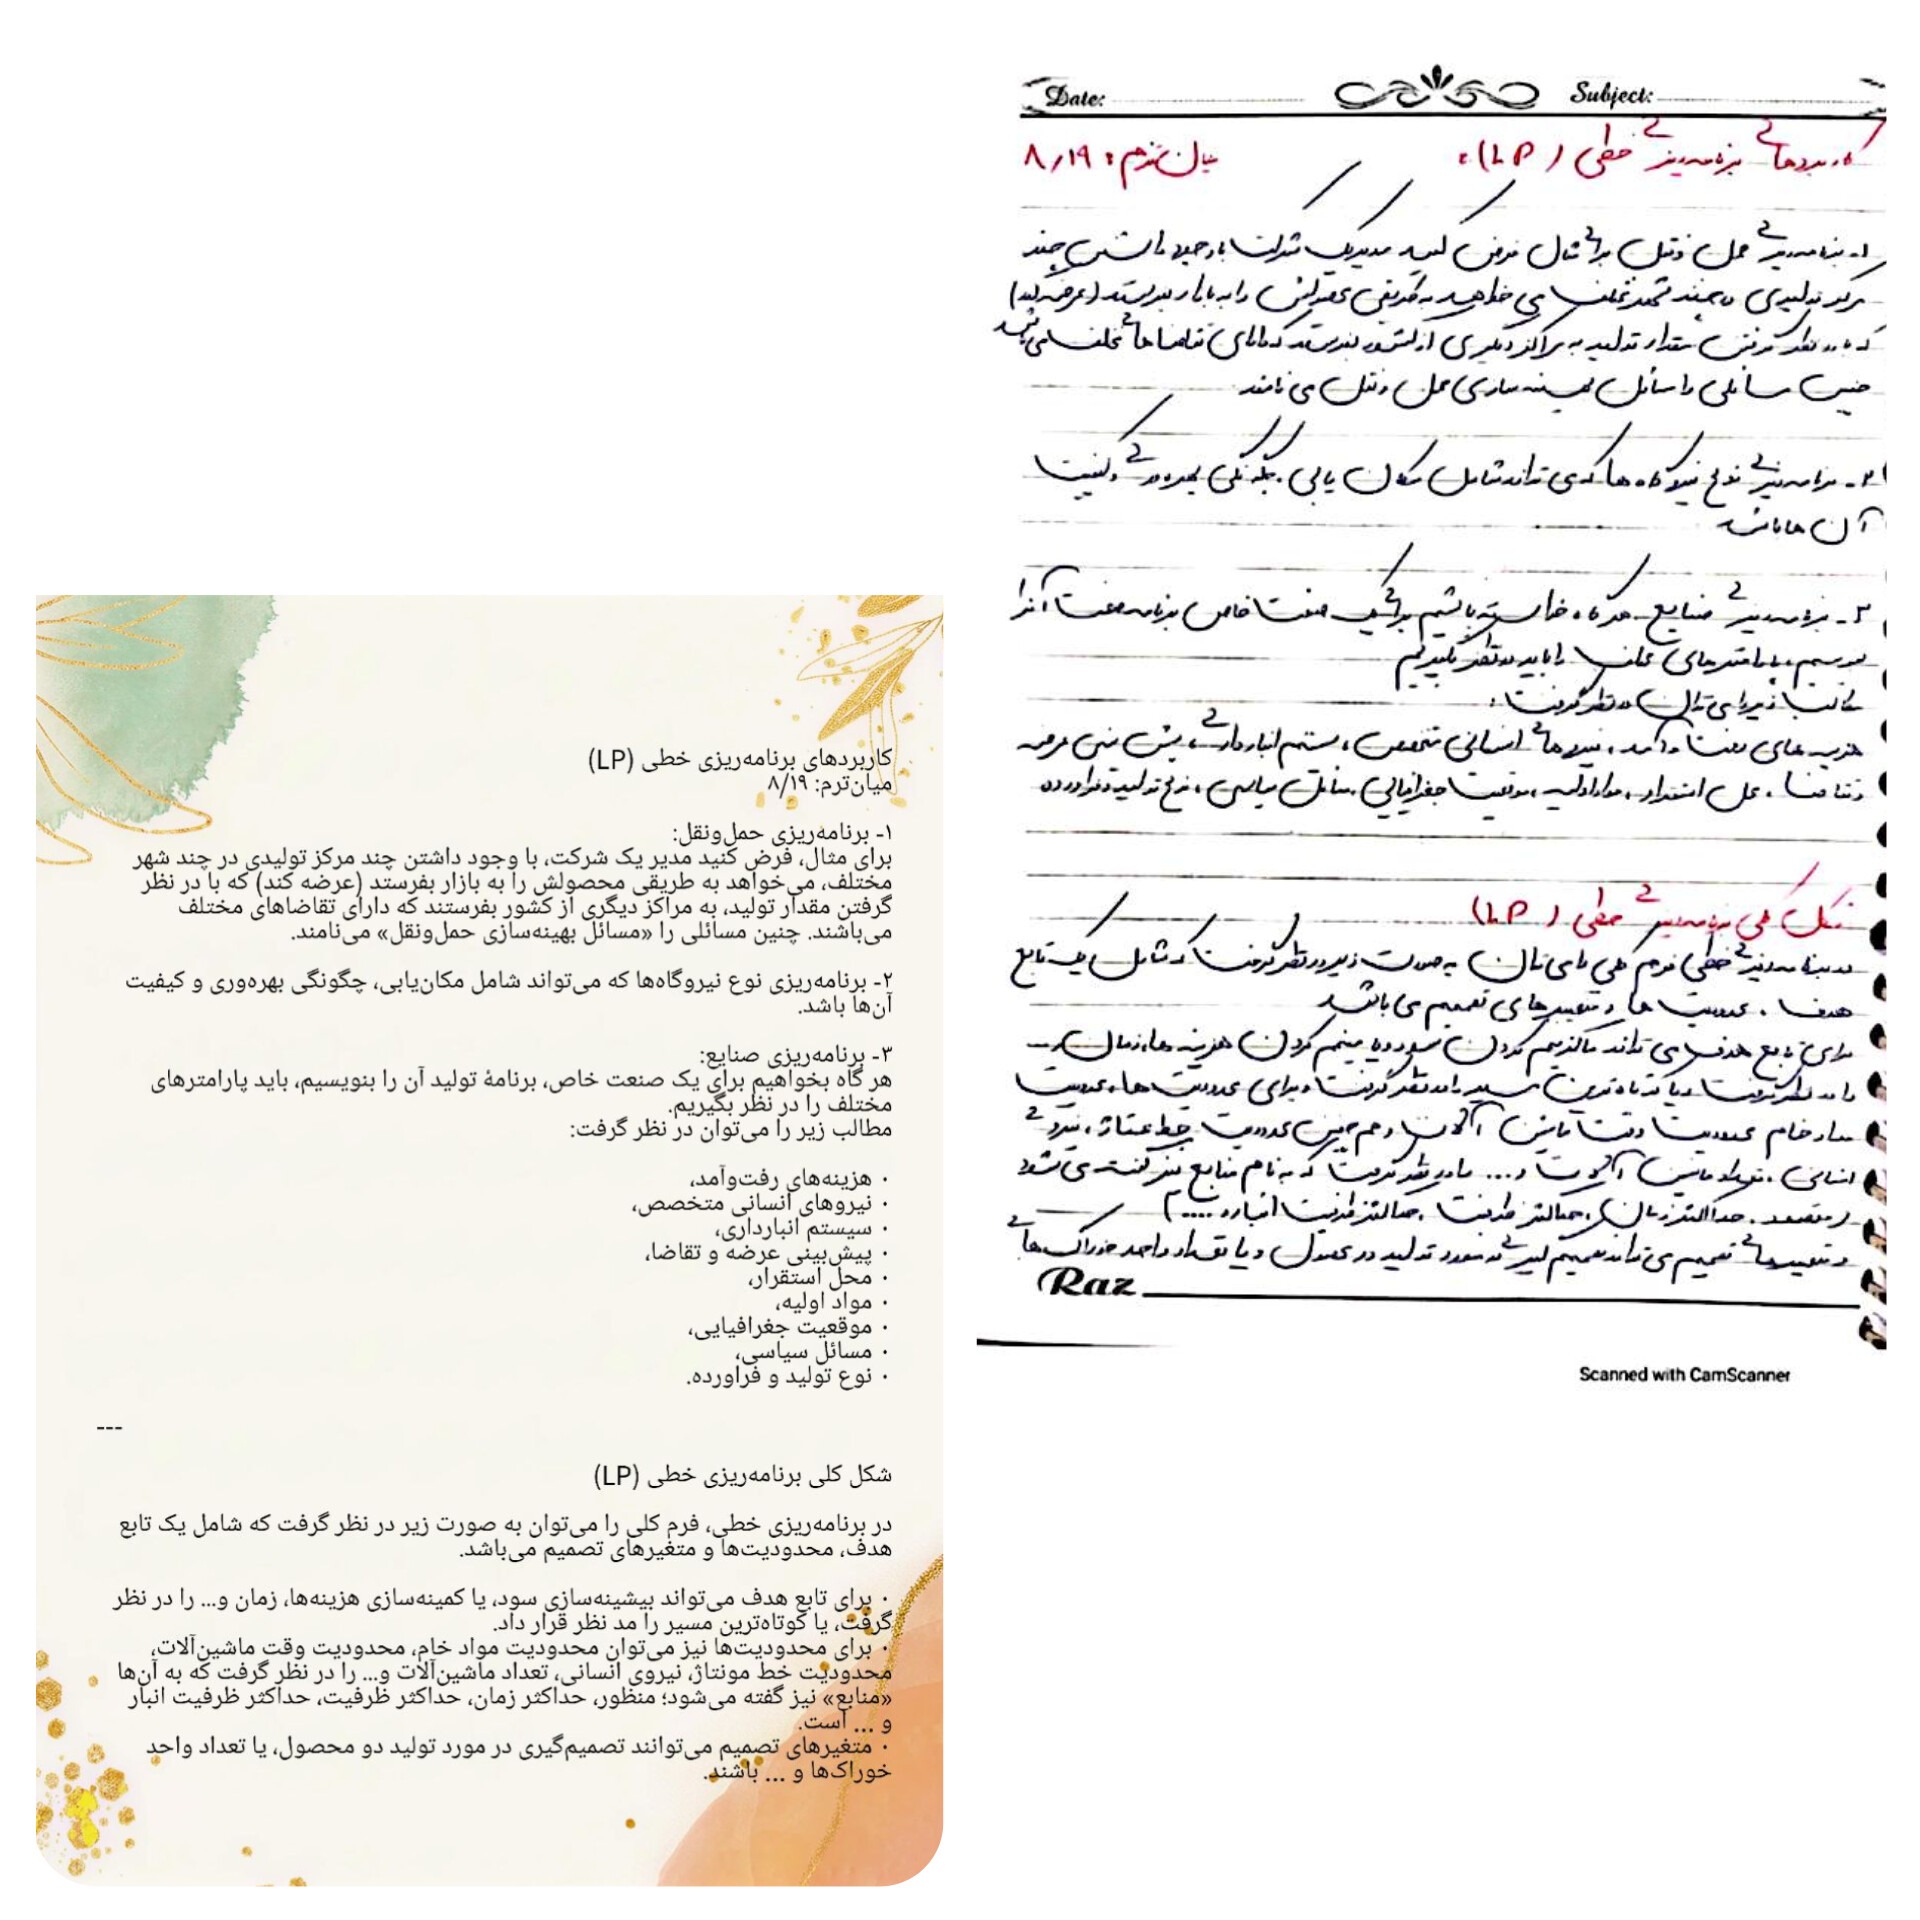 کاربردهای برنامه‌ریزی خطی (LP)
میان‌ترم: ۸/۱۹
۱- برنامه‌ریزی حمل‌ونقل:
برای مثال، فرض کنید مدیر یک شرکت، با وجود داشتن چند مرکز تولیدی در چند شهر
مختلف، می‌خواهد به طریقی محصولش را به بازار بفرستد (عرضه کند) که با در نظر
گرفتن مقدار تولید، به مراکز دیگری از کشور بفرستند که دارای تقاضاهای مختلف
می‌باشند. چنین مسائلی را «مسائل بهینه‌سازی حمل‌ونقل» می‌نامند.
۲- برنامه‌ریزی نوع نیروگاه‌ها که می‌تواند شامل مکان‌یابی، چگونگی بهره‌وری و کیفیت
آن‌ها باشد.
۳- برنامه‌ریزی صنایع:
هر گاه بخواهیم برای یک صنعت خاص، برنامهٔ تولید آن را بنویسیم، باید پارامترهای
مختلف را در نظر بگیریم.
مطالب زیر را می‌توان در نظر گرفت:
· هزینه‌های رفت‌وآمد،
· نیروهای انسانی متخصص،
· سیستم انبارداری،
· پیش‌بینی عرضه و تقاضا،
· محل استقرار،
· مواد اولیه،
· موقعیت جغرافیایی،
· مسائل سیاسی،
· نوع تولید و فراورده.
---
شکل کلی برنامه‌ریزی خطی (LP)
در برنامه‌ریزی خطی، فرم کلی را می‌توان به صورت زیر در نظر گرفت که شامل یک تابع
هدف، محدودیت‌ها و متغیرهای تصمیم می‌باشد.
· برای تابع هدف می‌تواند بیشینه‌سازی سود، یا کمینه‌سازی هزینه‌ها، زمان و... را در نظر
گرفت، یا کوتاه‌ترین مسیر را مد نظر قرار داد.
· برای محدودیت‌ها نیز می‌توان محدودیت مواد خام، محدودیت وقت ماشین‌آلات،
محدودیت خط مونتاژ، نیروی انسانی، تعداد ماشین‌آلات و... را در نظر گرفت که به آن‌ها
«منابع» نیز گفته می‌شود؛ منظور، حداکثر زمان، حداکثر ظرفیت، حداکثر ظرفیت انبار
و ... است.
· متغیرهای تصمیم می‌توانند تصمیم‌گیری در مورد تولید دو محصول، یا تعداد واحد
خوراک‌ها و ... باشند.
Date: Subject:
کاربردهای برنامه‌ریزی خطی (LP): میان‌ترم: ۸/۱۹
۱- برنامه‌ریزی حمل و نقل برای مثال فرض کنید مدیر یک شرکت با وجود داشتن چند
مرکز تولیدی در چند شهر مختلف می خواهد به طریقی محصولش را به بازار بفرستد (عرضه کند)
که با در نظر گرفتن مقدار تولید به مراکز دیگری از کشور بفرستد که دارای تقاضاهای مختلف می باشد
چنین مسائلی را مسائل بهینه سازی حمل و نقل می نامند
۲- برنامه‌ریزی نوع نیروگاه ها که می تواند شامل مکان یابی، چگونگی بهره وری و کیفیت
آن ها باشد
۳- برنامه‌ریزی صنایع هر گاه خواسته باشیم برای یک صنعت خاص برنامه صنعت آنرا
بنویسیم، پارامترهای مختلف را باید در نظر بگیریم
مطالب زیر را می توان در نظر گرفت:
هزینه های رفت و آمد، نیروهای انسانی متخصص، سیستم انبارداری، پیش بینی عرضه
و تقاضا، محل استقرار، مواد اولیه، موقعیت جغرافیایی، مسائل سیاسی، نوع تولید و فراورده
شکل کلی برنامه‌ریزی خطی (LP)
در برنامه‌ریزی خطی فرم کلی را می توان به صورت زیر در نظر گرفت که شامل یک تابع
هدف، محدودیت ها و متغیرهای تصمیم می باشد
برای تابع هدف می تواند ماکزیمم کردن سود و یا مینیمم کردن هزینه ها، زمان و...
را در نظر گرفت و یا کوتاه ترین مسیر را در نظر گرفت و برای محدودیت ها، محدودیت
مواد خام محدودیت وقت ماشین آلات و هم چنین محدودیت خط مونتاژ، نیروی
انسانی، تعداد ماشین آلات و... را در نظر گرفت که به نام منابع نیز گفته می شود
(منظور، حداکثر زمان، حداکثر ظرفیت، حداکثر ظرفیت انبار و ....)
و متغیرهای تصمیم می تواند تصمیم گیری در مورد تولید دو محصول و یا تعداد واحد خوراک های
Raz
Scanned with CamScanner